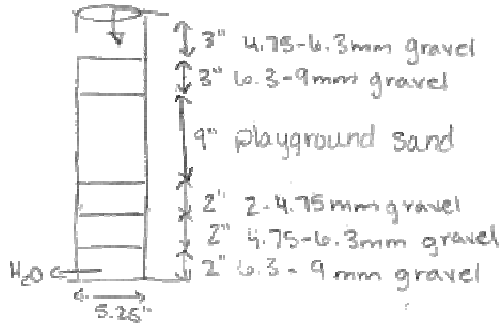 3" 4.75-6.3mm gravel
3" 6.3-9mm gravel
9" playground sand
2" 2-4.75mm gravel
2" 4.75-6.3mm gravel
2" 6.3-9mm gravel
H₂O
5.25"